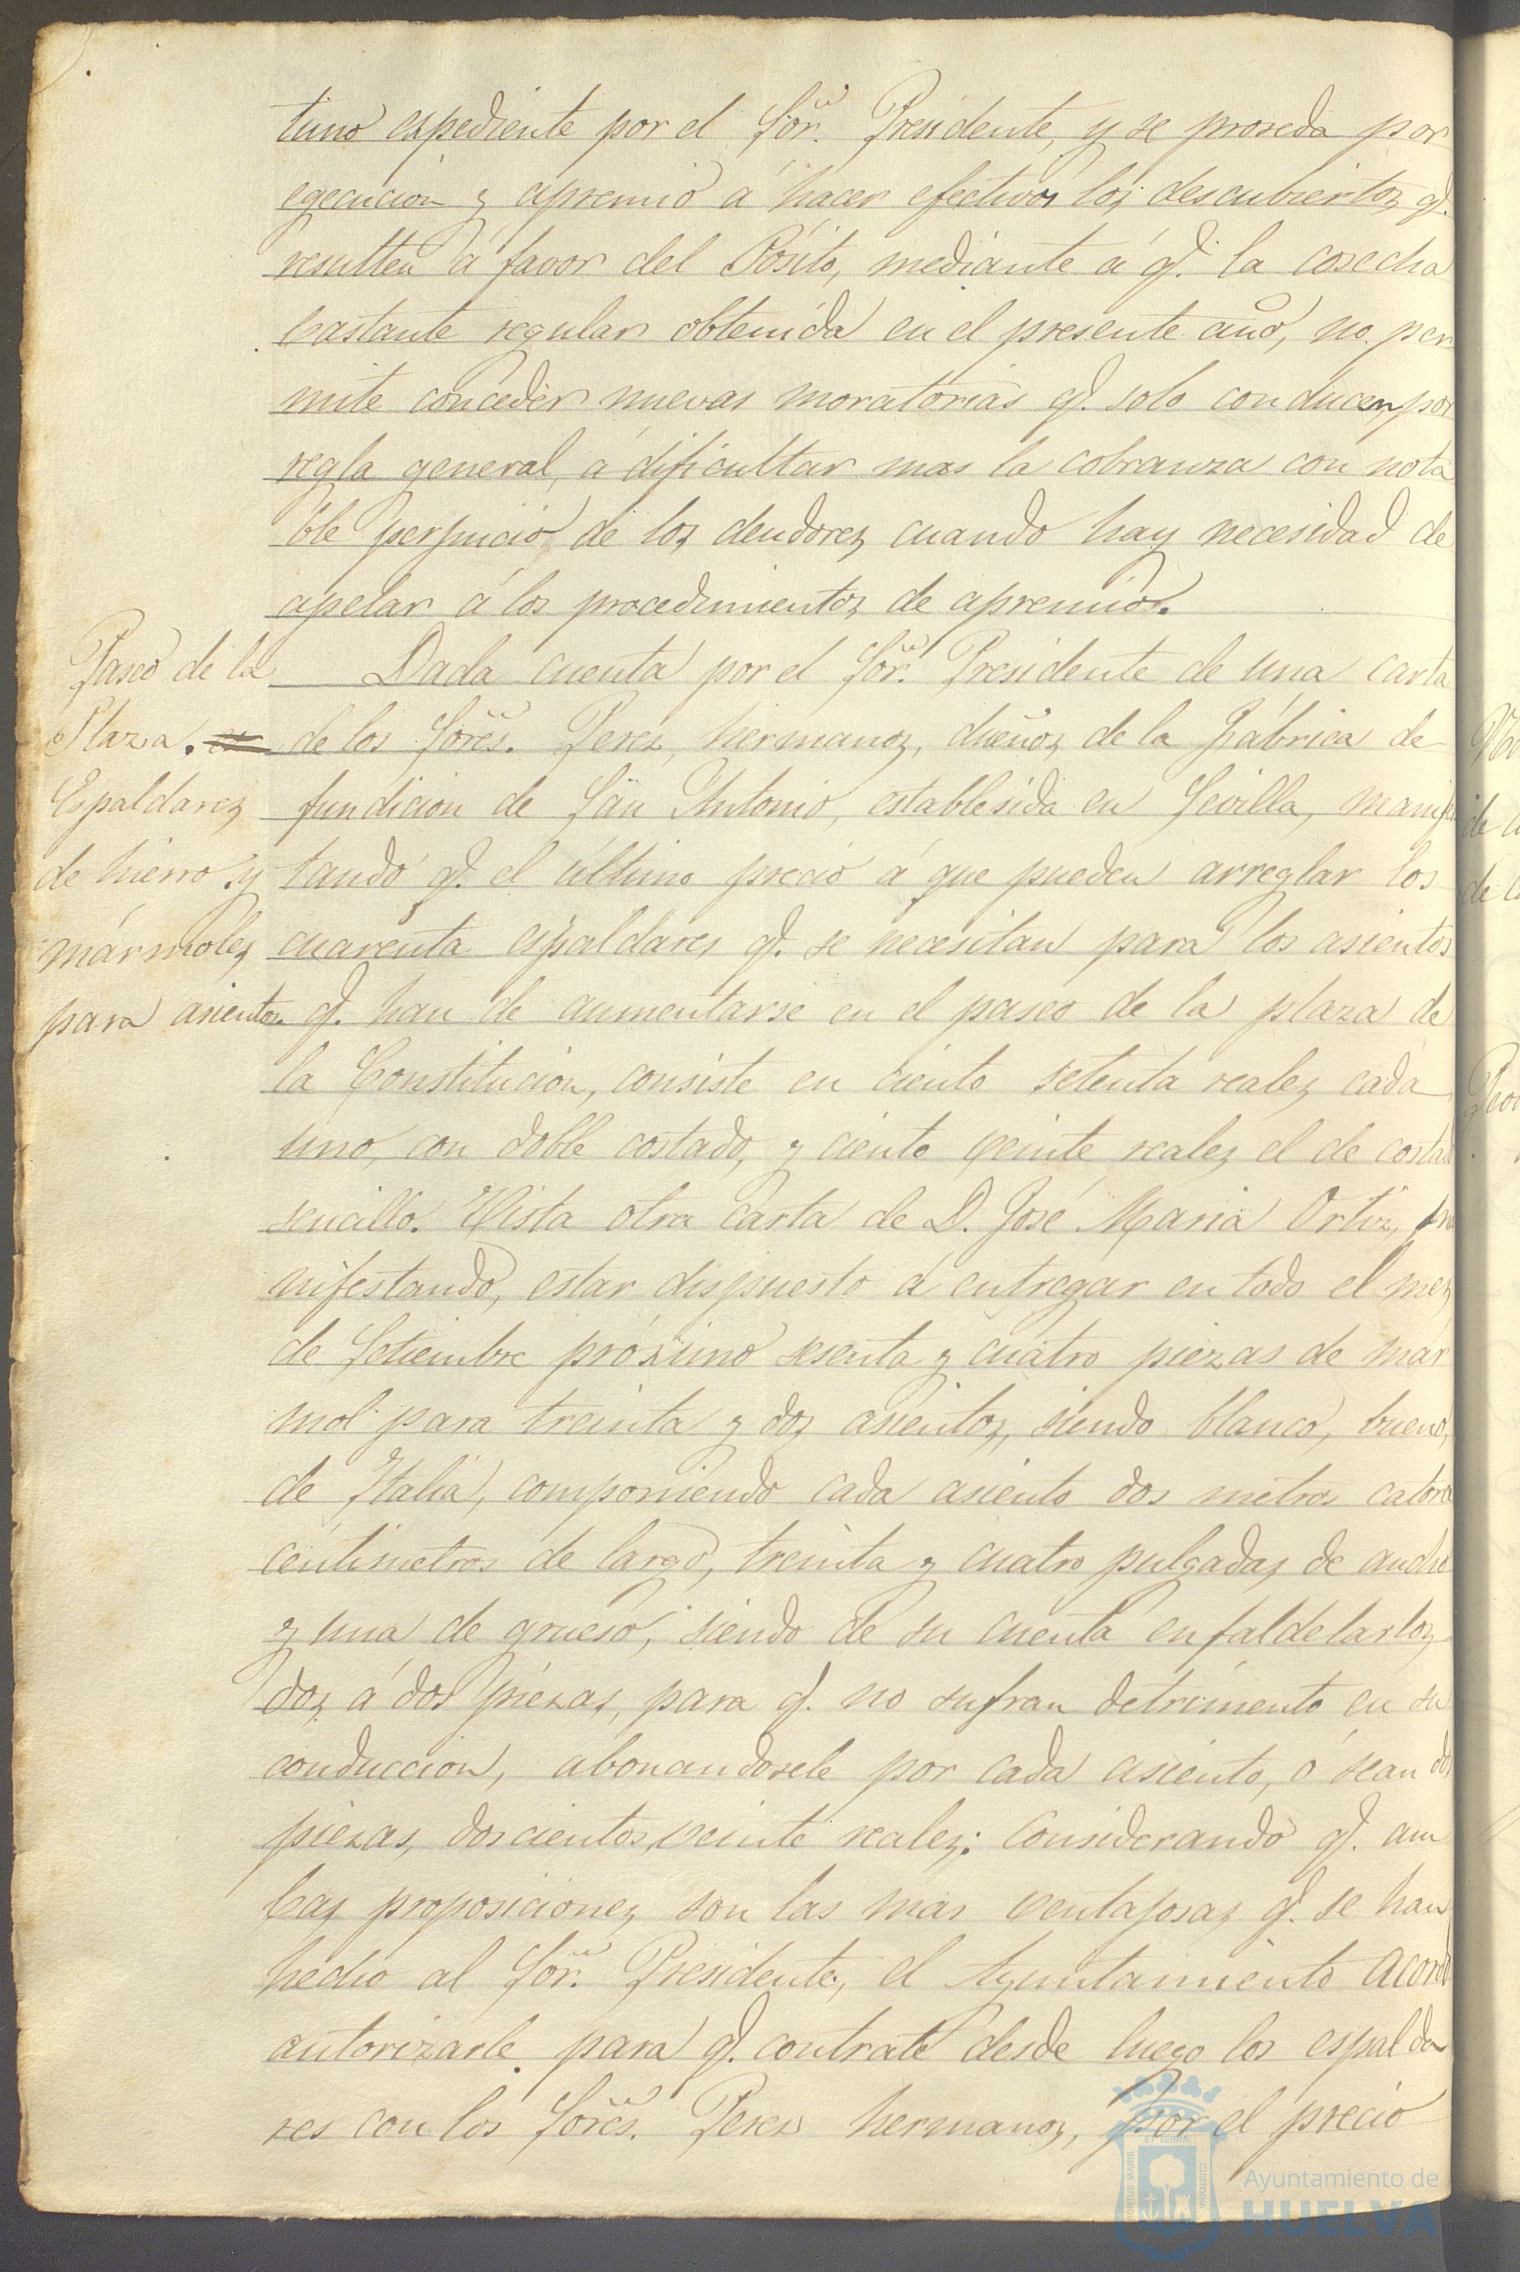 tuno expediente por el Sor. Presidente, y se proseda por
egecucion y apremio á hacer efectivos los descubiertos q.
resulten á favor del Pósito, mediante á q. la cosecha
bastante regular obtenida en el presente año, no per
mite conceder nuevas moratorias q. solo conducen, por
regla general, á dificultar mas la cobranza con nota
ble perjuicio de los deudores, cuando hay necesidad de
apelar á los procedimientos de apremio.
Paseo de la
Plaza.
Espaldares
de hierro y
mármoles
para asientos.
Dada cuenta por el Sor. Presidente de una carta
de los Sores. Peres, hermanos, dueños de la Fábrica de
fundicion de San Antonio, establesida en Sevilla, manifes
tando q. el último precio á que pueden arreglar los
cuarenta espaldares q. se necesitan para los asientos
q. han de aumentarse en el paseo de la plaza de
la Constitucion, consiste en ciento setenta reales cada
uno, con doble costado, y ciento veinte reales el de costado
sencillo. Vista otra carta de D. José Maria Ortiz, ma
nifestando, estar dispuesto á entregar en todo el mes
de Setiembre próximo sesenta y cuatro piezas de már
mol para treinta y dos asientos, siendo blanco, bueno,
de Italia, componiendo cada asiento dos metros catorce
centimetros de largo, treinta y cuatro pulgadas de ancho
y una de grueso, siendo de su cuenta enfaldelarlos
dos á dos piezas, para q. no sufran detrimento en su
conduccion, abonandosele por cada asiento, ó sean dos
piezas, doscientos veinte reales: Considerando q. am
bas proposiciones son las mas ventajosas q. se han
hecho al Sor. Presidente, el Ayuntamiento acordó
autorizarle para q. contrate desde luego los espalda
res con los Sores. Peres hermanos, por el precio
Ayuntamiento de
HUELVA